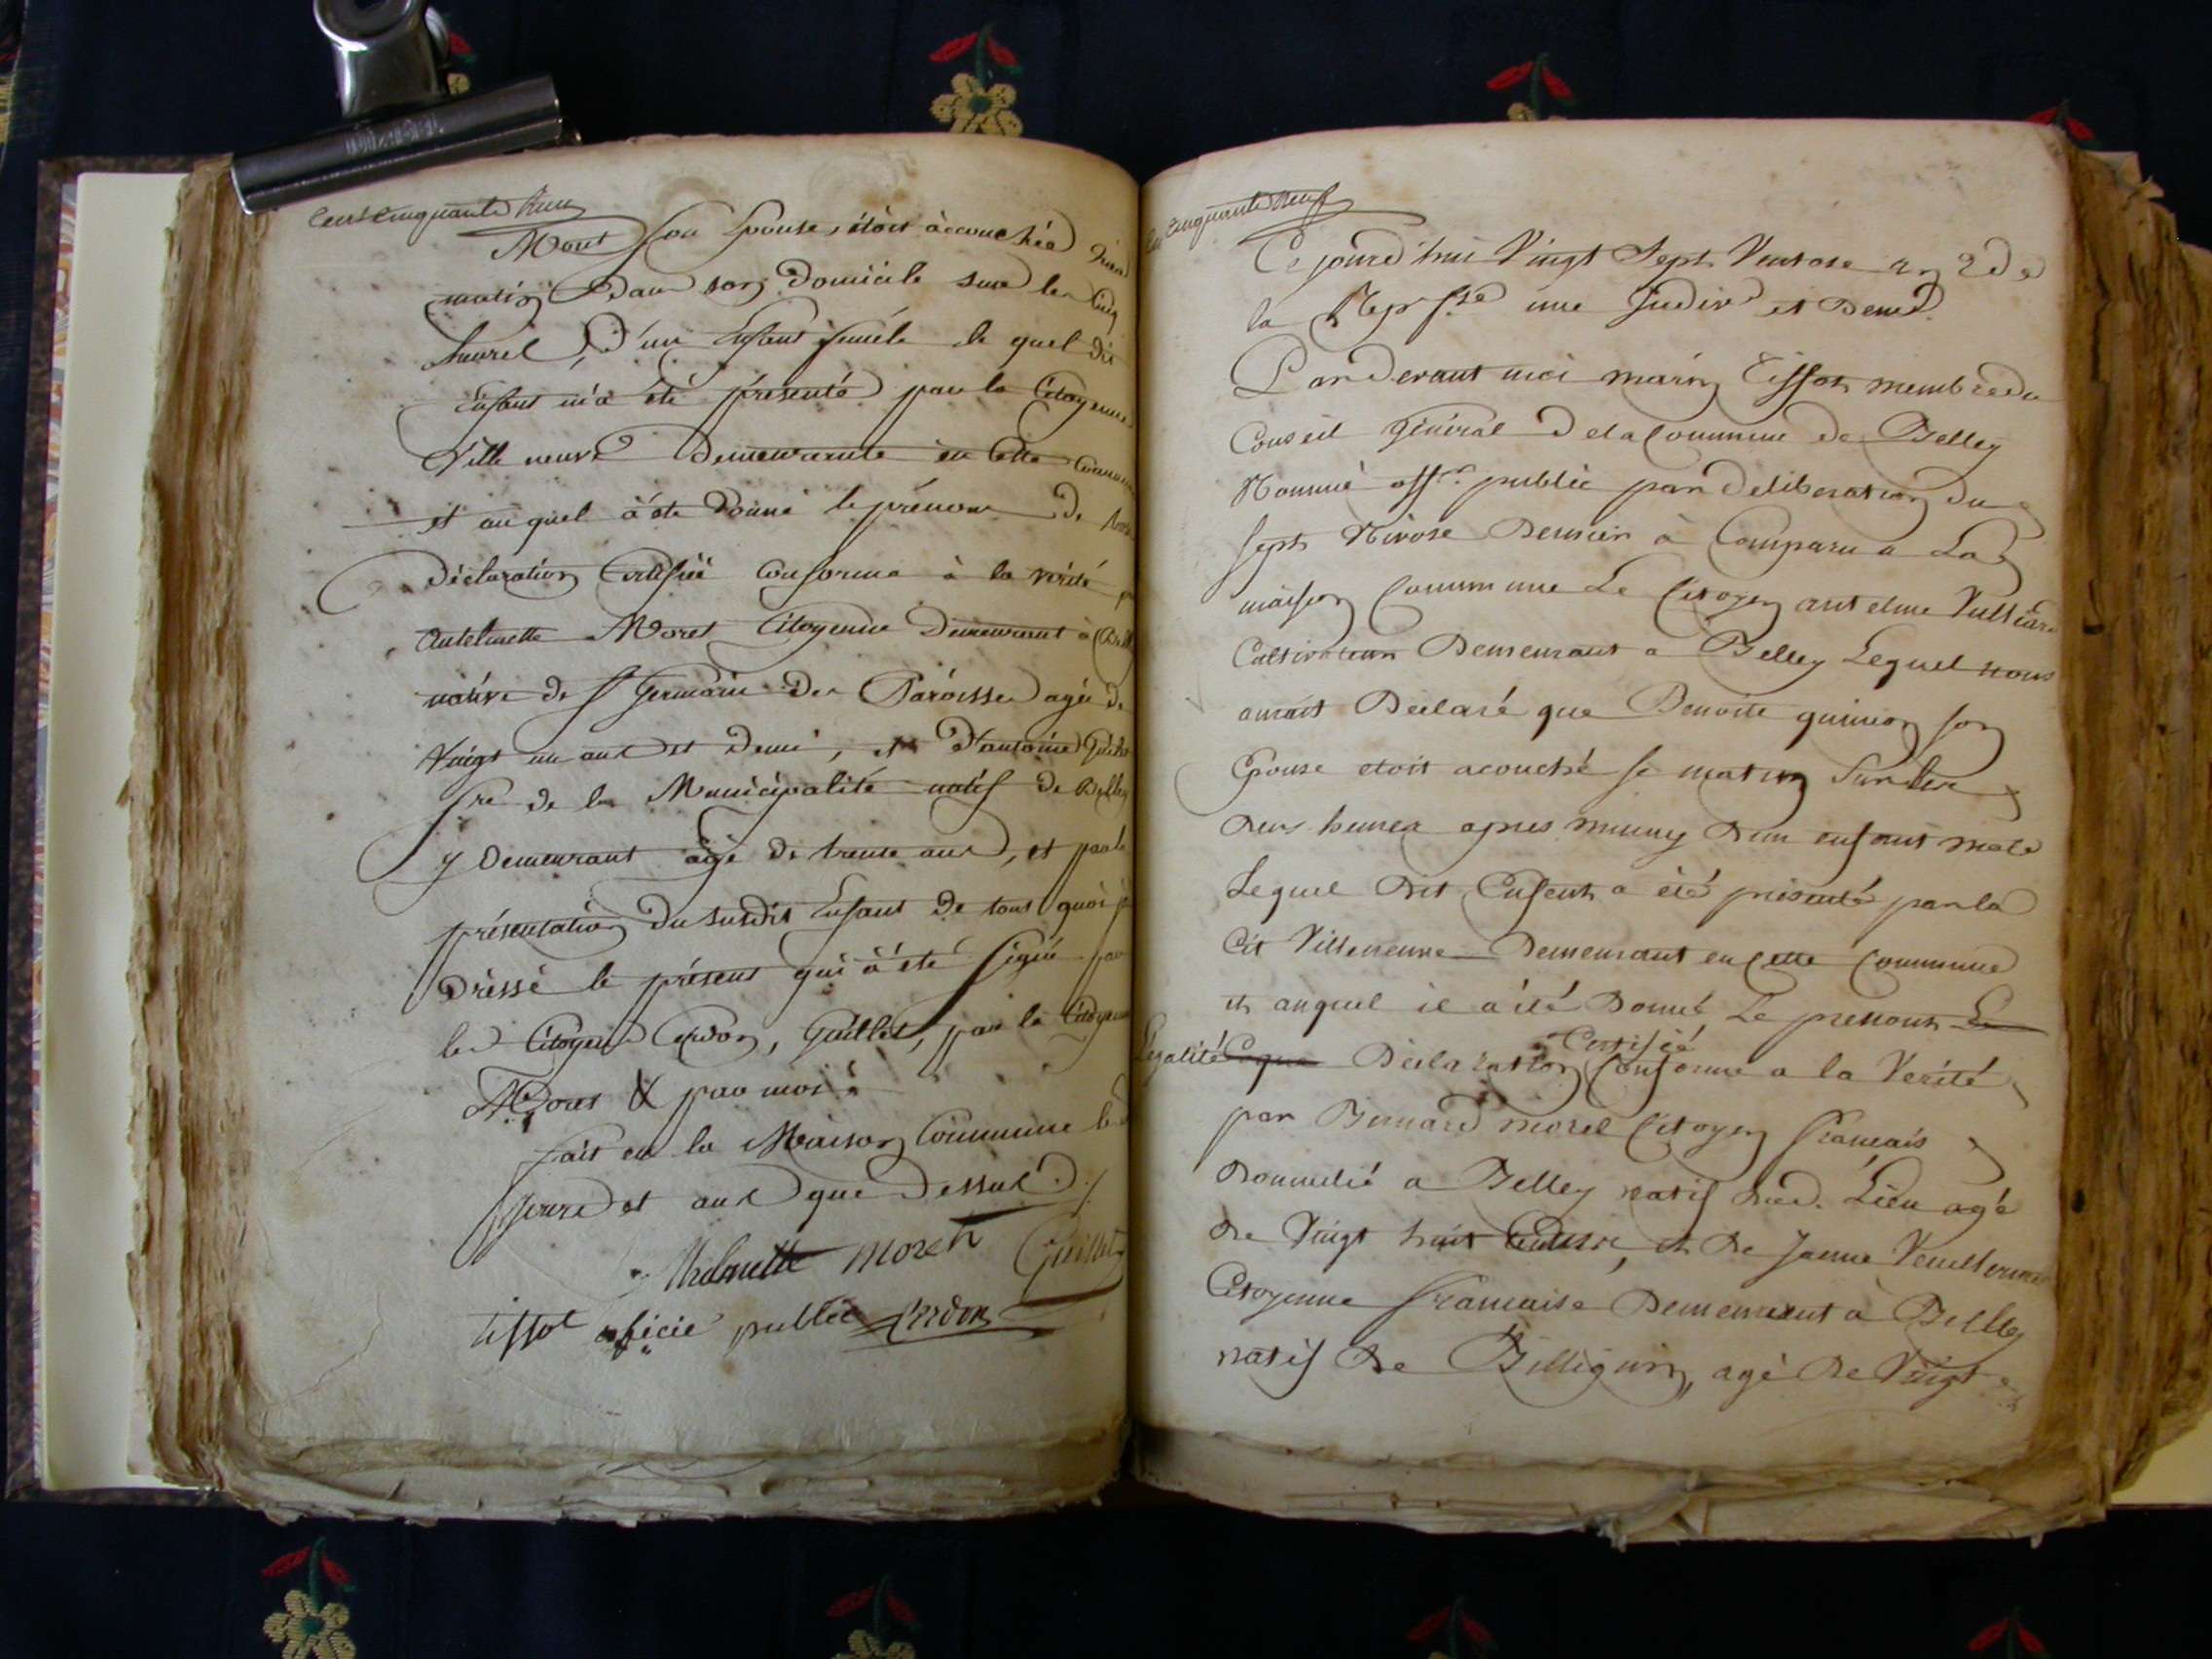 Cent Cinquante huit
Moret son Epouse, étoit àccouchée hier
matin Dans son Domicile sur les Cinq
heures, D'un Enfant femele le quel dit
Enfant m'a été présenté par la Citoyenne
Ville neuve Demeurante en cette Commune
et au quel à été Donné le prénom De
Déclaration Certifiée Conforme à la vérité
Antelmette Moret Citoyenne Demeurant à Bell
native de St Germain Des Paroisses agée de
Vingt un ans et Demi, et D'antoine
sre de la Municipalité natif de Belley
y Demeurant âgé de trente ans, et par la
présentation Du susdit Enfant De tout quoi j'ai
Dressé le présent qui à été signé par
les Citoyens Cerdon, Guillet, par la Citoyenne
Moret & par moi
fait en la Maison Commune les
jours et ans que Dessus ./.
Anthelmette moret Guillet
tissot oficié publie Cerdon
Cent Cinquante neuf
Ce jourd'hui Vingt Sept Ventose an 2 de
la Rep fse une Indive et Democ
Par Devant moi marin Tissot membre du
Conseil général De la Commune de Belley
Nommé offer public par Deliberation du
sept Nivose Dernier à Comparu a La
maison Commune Le Citoyen antelme
Cultivateur Demeurant a Belley Lequel nous
auroit Déclaré que Benoite guinon son
Epouse etoit acouché se matin Sur les
deux heures apres minuy dun enfant male
Lequel dit Enfent a été présenté par la
Cit Villeneuve Demeurant en Cette Commune
et auquel il a été Donné Le prenom
Legalité Déclaration Certifié Conforme a la Verité
par Bernard morel Citoyen francais
Domicilié a Belley natif dud. Lieu agé
de Vingt huit et de Janne
Citoyenne francaise Demeurant a Belley
natif de Billignin, agé de Vingt